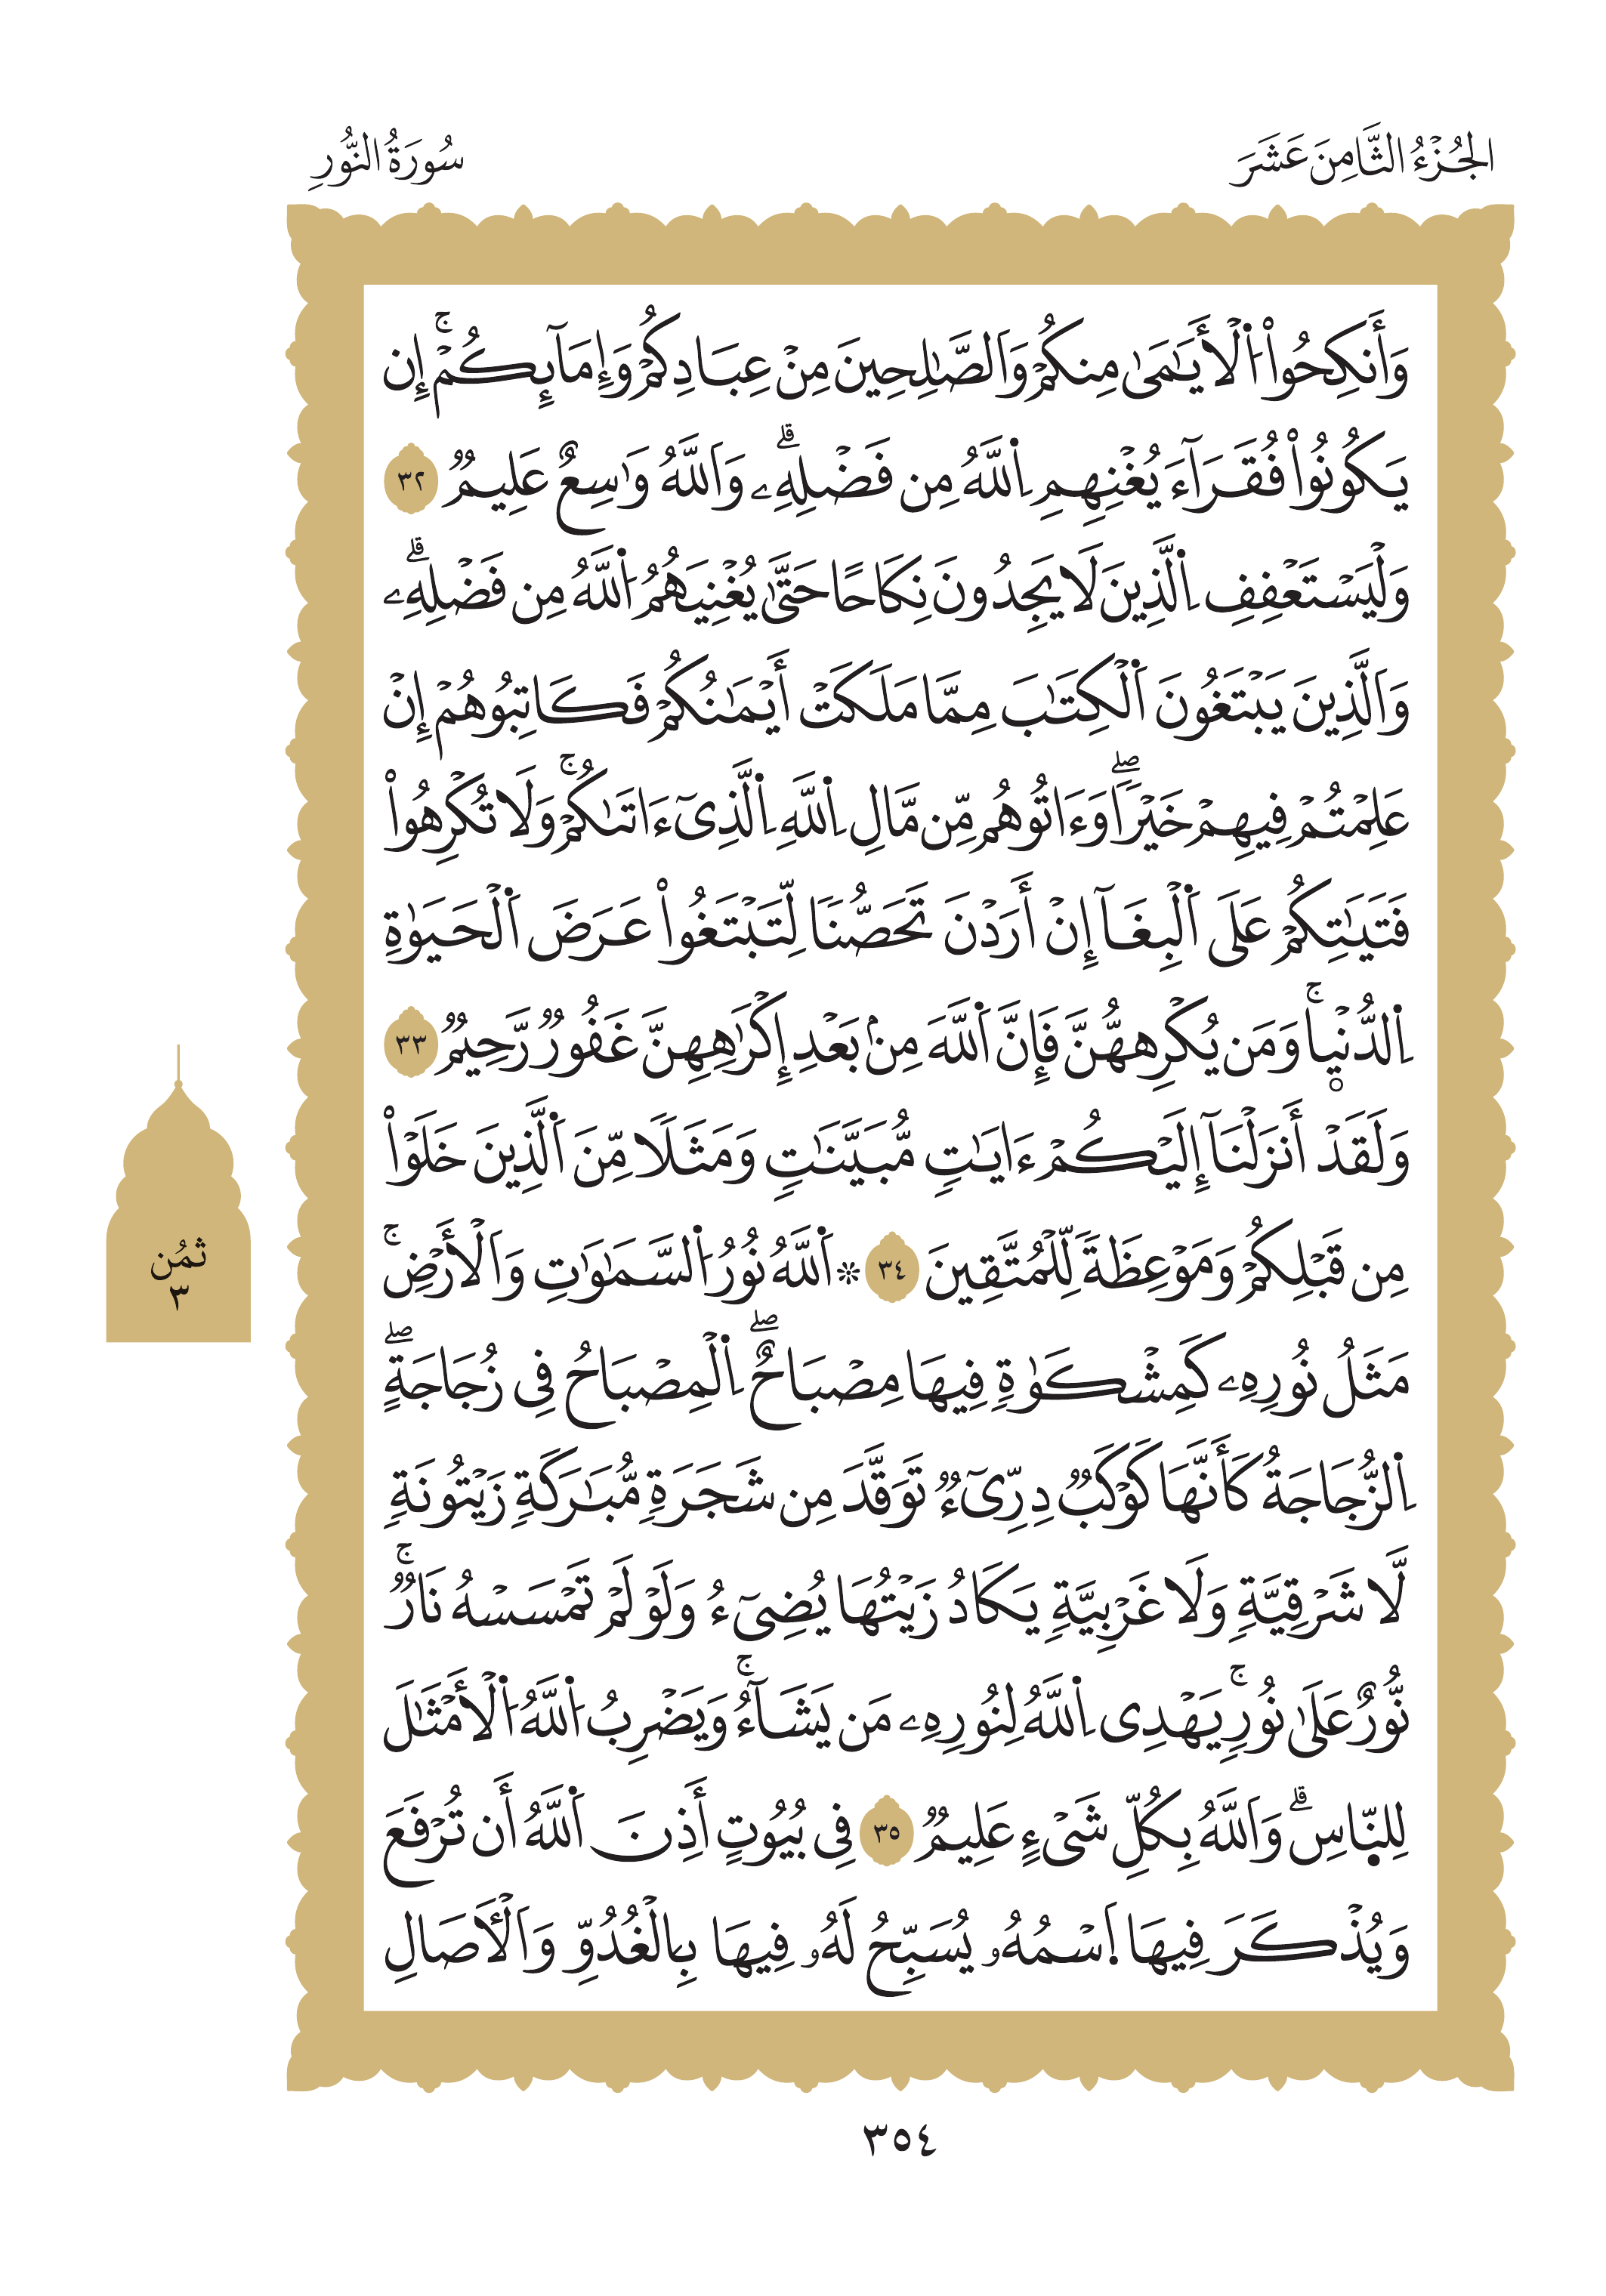 الجُزْءُ الثَّامِنَ عَشَرَ
سُورَةُ النُّورِ
وَأَنكِحُواْ اُ۬لْأَيَٰمَىٰ مِنكُمْ وَاَلصَّٰلِحِينَ مِنْ عِبَادِكُمْ وَإِمَآئِكُمْۚ إِن
يَكُونُواْ فُقَرَآءَ يُغْنِهِمِ اِ۬للَّهُ مِن فَضْلِهِۦۗ وَاَللَّهُ وَٰسِعٌ عَلِيمٞ ٣٢
وَلْيَسْتَعْفِفِ اِ۬لَّذِينَ لَا يَجِدُونَ نِكَاحًا حَتَّىٰ يُغْنِيَهُمُ اُ۬للَّهُ مِن فَضْلِهِۦۗ
وَاَلَّذِينَ يَبْتَغُونَ اَ۬لْكِتَٰبَ مِمَّا مَلَكَتْ أَيْمَٰنُكُمْ فَكَاتِبُوهُمْ إِنْ
عَلِمْتُمْ فِيهِمْ خَيْرٗاۖ وَءَاتُوهُم مِّن مَّالِ اِ۬للَّهِ اِ۬لَّذِيٓ ءَاتَىٰكُمْۚ وَلَا تُكْرِهُواْ
فَتَيَٰتِكُمْ عَلَى اَ۬لْبِغَآ إِنْ أَرَدْنَ تَحَصُّنٗا لِّتَبْتَغُواْ عَرَضَ اَ۬لْحَيَوٰةِ
اِ۬لدُّنْيۭاۚ وَمَن يُكْرِههُّنَّ فَإِنَّ اَ۬للَّهَ مِنۢ بَعْدِ إِكْرَٰهِهِنَّ غَفُورٞ رَّحِيمٞ ٣٣
وَلَقَدْ أَنزَلْنَآ إِلَيْكُمْ ءَايَٰتٖ مُّبَيَّنَٰتٖ وَمَثَلٗا مِّنَ اَ۬لَّذِينَ خَلَوْاْ
مِن قَبْلِكُمْ وَمَوْعِظَةٗ لِّلْمُتَّقِينَ ٣٤ ۞ اَ۬للَّهُ نُورُ اُ۬لسَّمَٰوَٰتِ وَاَلْأَرْضِۚ
مَثَلُ نُورِهِۦ كَمِشْكَوٰةٖ فِيهَا مِصْبَاحٌۖ اِ۬لْمِصْبَاحُ فِي زُجَاجَةٍۖ
اِ۬لزُّجَاجَةُ كَأَنَّهَا كَوْكَبٞ دِرِّيٓءٞ تَوَقَّدَ مِن شَجَرَةٖ مُّبَٰرَكَةٖ زَيْتُونَةٖ
لَّا شَرْقِيَّةٖ وَلَا غَرْبِيَّةٖ يَكَادُ زَيْتُهَا يُضِيٓءُ وَلَوْ لَمْ تَمْسَسْهُ نَارٞۚ
نُّورٌ عَلَىٰ نُورٖۚ يَهْدِي اِ۬للَّهُ لِنُورِهِۦ مَن يَشَآءُۚ وَيَضْرِبُ اُ۬للَّهُ اُ۬لْأَمْثَٰلَ
لِلنّ۪اسِۗ وَاَللَّهُ بِكُلِّ شَيْءٍ عَلِيمٞ ٣٥ فِي بُيُوتٍ أَذِنَ اَ۬للَّهُ أَن تُرْفَعَ
وَيُذْكَرَ فِيهَا اَ۪سْمُهُۥ يُسَبِّحُ لَهُۥ فِيهَا بِالْغُدُوِّ وَاَلْأٓصَالِ
ثمُن
٣
٣٥٤